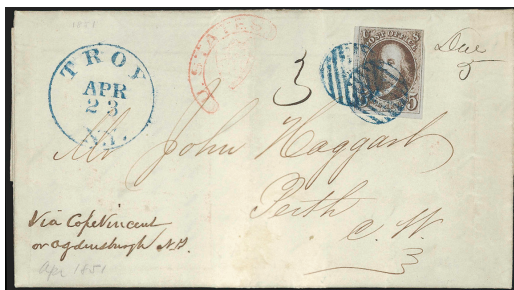 1851
TROY
APR
23
N.Y.
U. STATES
3
POST OFFICE
5
Due
5
Mr John Haggart
Perth
C. W.
Via Cape Vincent
or Ogdensburgh N.Y.
Apr 1851